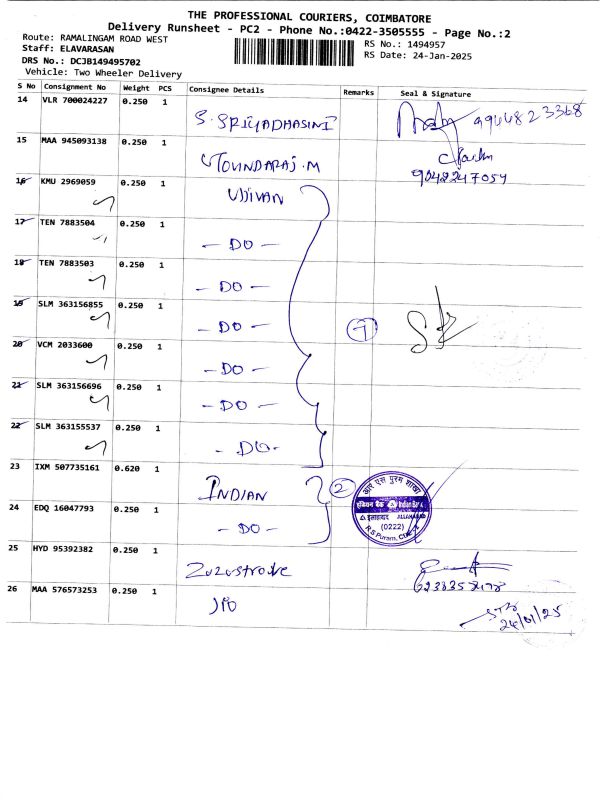 THE PROFESSIONAL COURIERS, COIMBATORE
Delivery Runsheet - PC2 - Phone No.:0422-3505555 - Page No.:2
Route: RAMALINGAM ROAD WEST
Staff: ELAVARASAN
DRS No.: DCJB149495702
Vehicle: Two Wheeler Delivery
RS No.: 1494957
RS Date: 24-Jan-2025
S No Consignment No Weight PCS Consignee Details Remarks Seal & Signature
14 VLR 700024227 0.250 1 S. SRIYADHASINI
15 MAA 945093138 0.250 1 GOVINDARAJ.M
16 KMU 2969059 0.250 1 UJJIVAN
17 TEN 7883504 0.250 1 - DO -
18 TEN 7883503 0.250 1 - DO -
19 SLM 363156855 0.250 1 - DO - 7
20 VCM 2033600 0.250 1 - DO -
21 SLM 363156696 0.250 1 - DO -
22 SLM 363155537 0.250 1 - DO -
23 IXM 507735161 0.620 1 INDIAN 2
24 EDQ 16047793 0.250 1 - DO -
आर एस पुरम शाखा
इलाहाबाद ALLAHABAD
(0222)
R S Puram, CBE-2
25 HYD 95392382 0.250 1
26 MAA 576573253 0.250 1
24/01/25